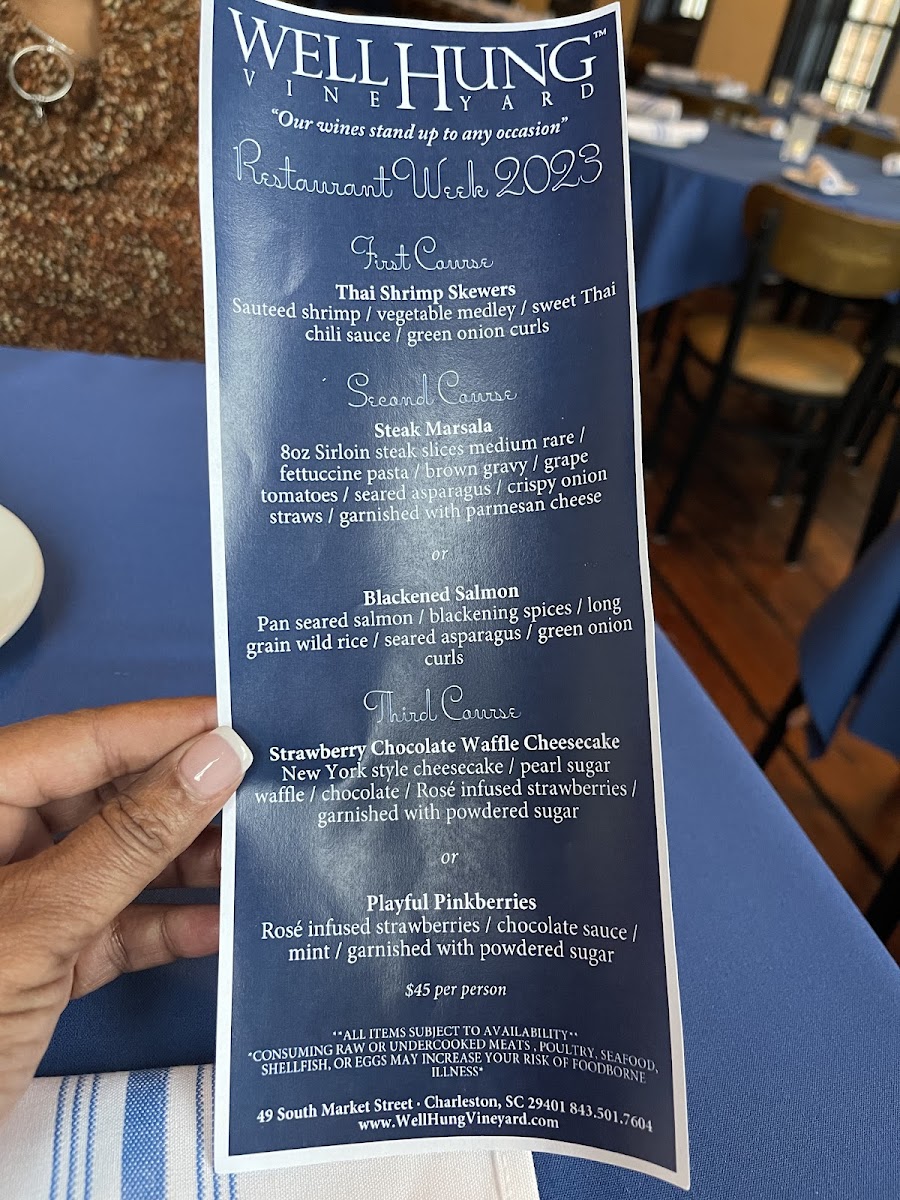 WELL HUNG™
VINEYARD
"Our wines stand up to any occasion"
Restaurant Week 2023
First Course
Thai Shrimp Skewers
Sauteed shrimp / vegetable medley / sweet Thai
chili sauce / green onion curls
Second Course
Steak Marsala
8oz Sirloin steak slices medium rare /
fettuccine pasta / brown gravy / grape
tomatoes / seared asparagus / crispy onion
straws / garnished with parmesan cheese
or
Blackened Salmon
Pan seared salmon / blackening spices / long
grain wild rice / seared asparagus / green onion
curls
Third Course
Strawberry Chocolate Waffle Cheesecake
New York style cheesecake / pearl sugar
waffle / chocolate / Rosé infused strawberries /
garnished with powdered sugar
or
Playful Pinkberries
Rosé infused strawberries / chocolate sauce /
mint / garnished with powdered sugar
$45 per person
**ALL ITEMS SUBJECT TO AVAILABILITY**
*CONSUMING RAW OR UNDERCOOKED MEATS , POULTRY, SEAFOOD,
SHELLFISH, OR EGGS MAY INCREASE YOUR RISK OF FOODBORNE
ILLNESS*
49 South Market Street · Charleston, SC 29401 843.501.7604
www.WellHungVineyard.com